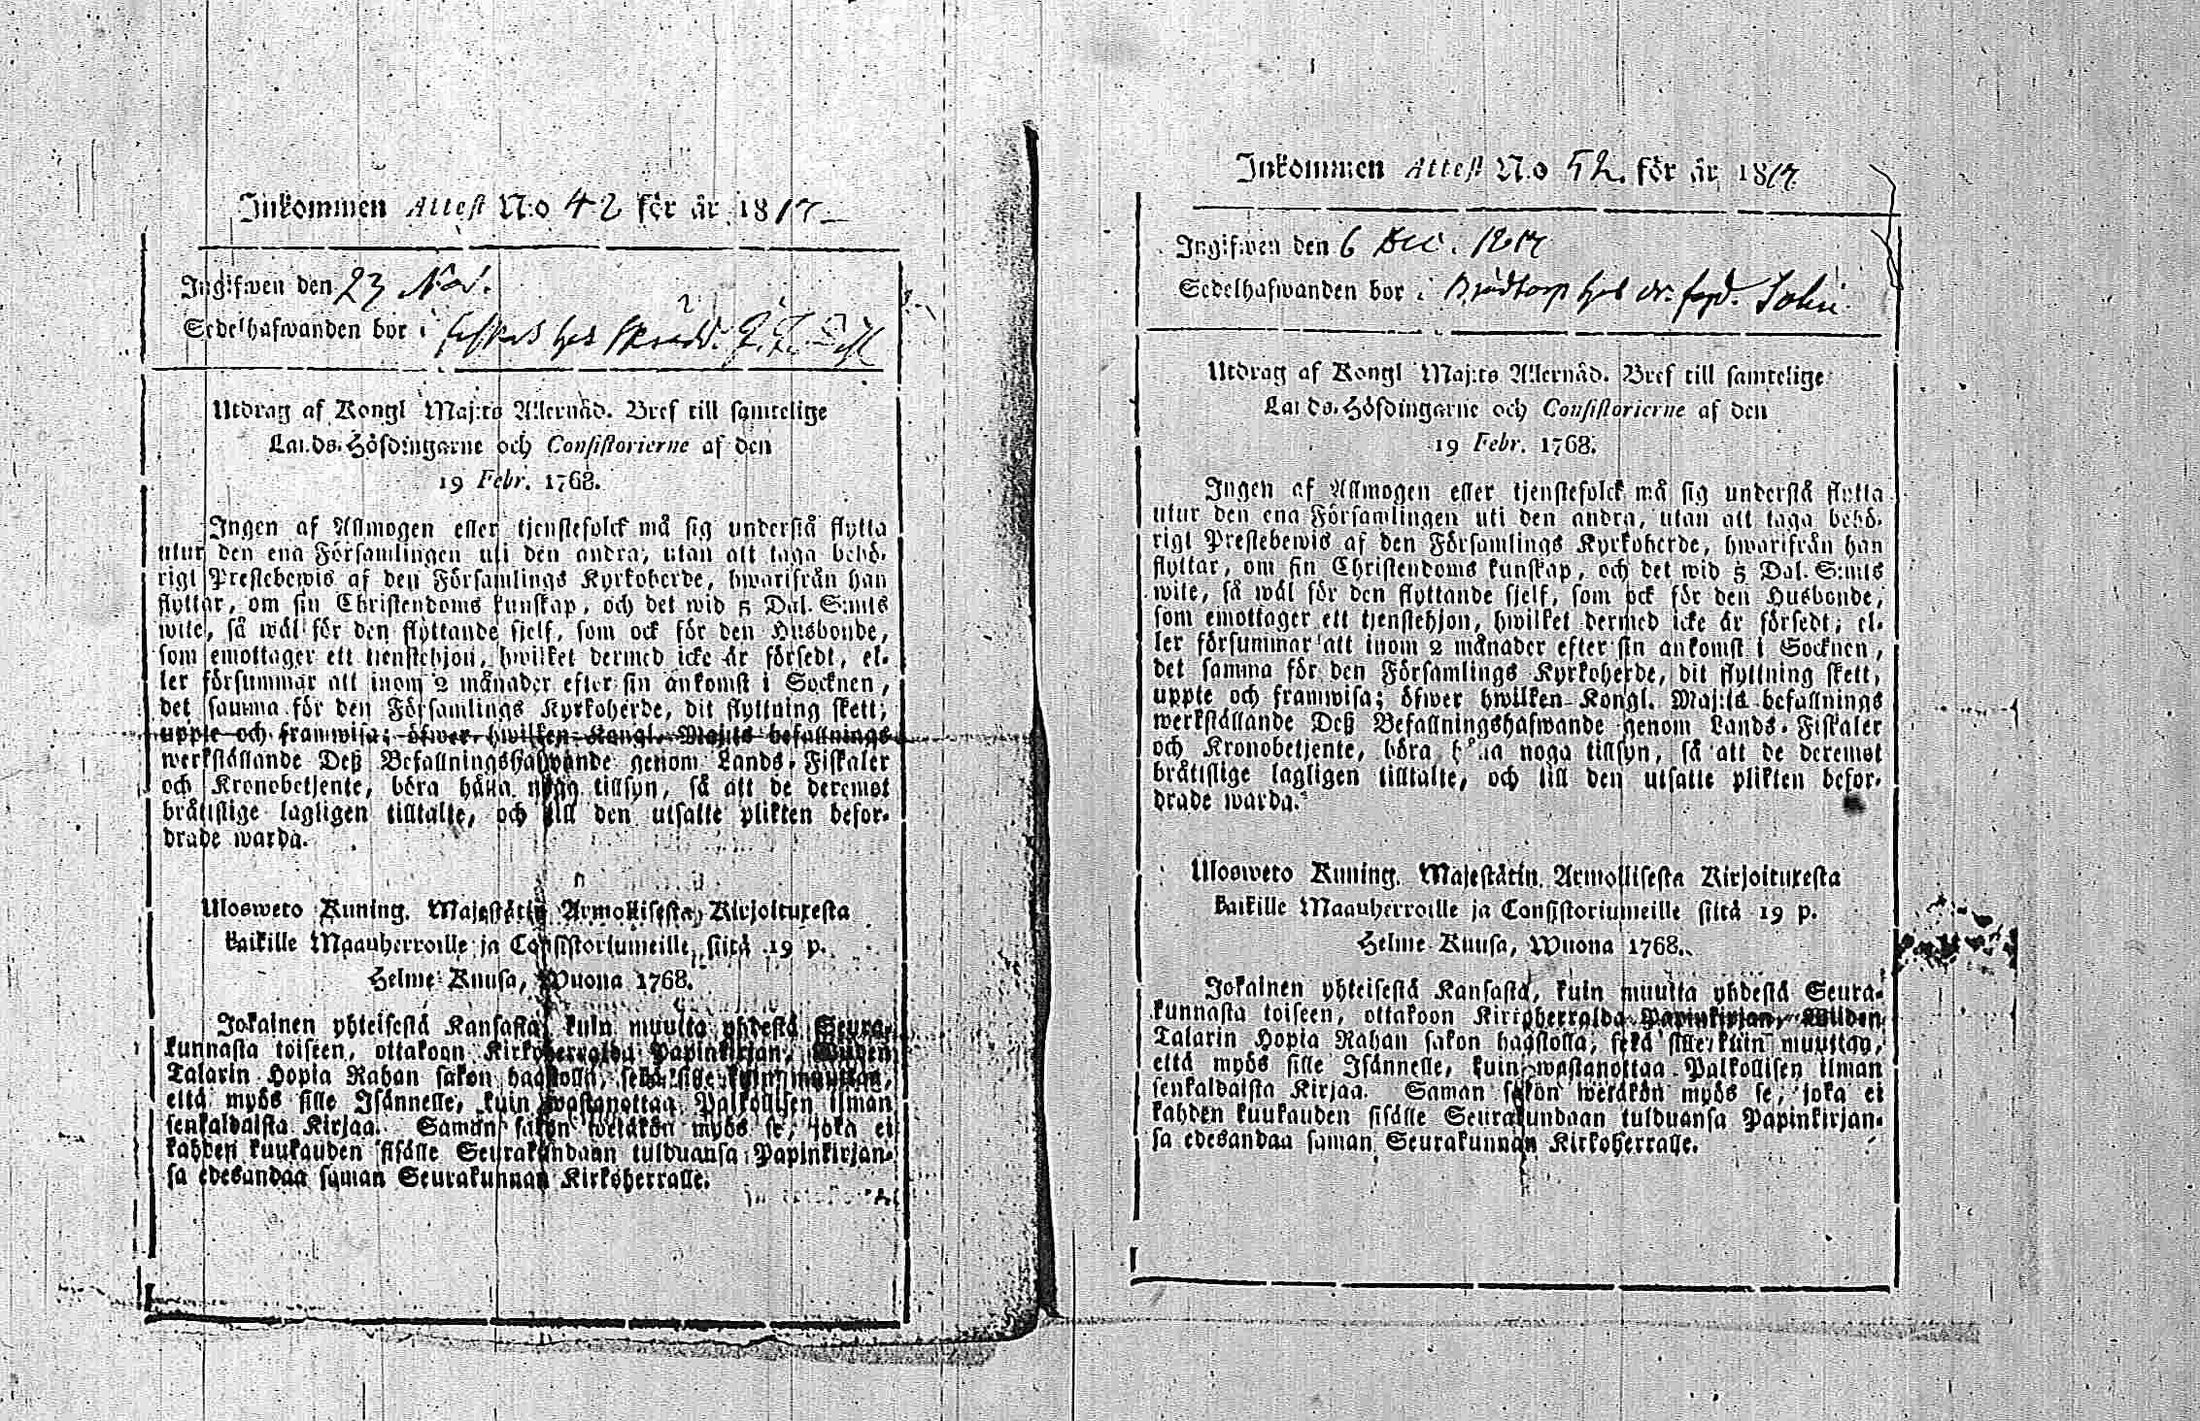 Inkommen Attest N:o 42 för år 1817
Ingifwen den 23 Nov.
Sedelhafwanden bor i hos
Utdrag af Kongl Maj:ts Allernåd. Bref till samtelige
Lands-Höfdingarne och Consistorierne af den
19 Febr. 1768.
Ingen af Allmogen eller tjenstefolck må sig understå flytta
utur den ena Församlingen uti den andra, utan att taga behö-
rigt Prestebewis af den Församlings Kyrkoherde, hwarifrån han
flyttar, om sin Christendoms kunskap, och det wid 5 Dal. S:mts
wite, så wäl för den flyttande sjelf, som ock för den Husbonde,
som emottager ett tjenstehjon, hwilket dermed icke är försedt, el-
ler försummar att inom 2 månader efter sin ankomst i Socknen,
det samma för den Församlings Kyrkoherde, dit flyttning skett,
uppte och framwisa; öfwer hwilken Kongl. Maj:ts befallnings
werkställande Deß Befallningshafwande genom Lands-Fiskaler
och Kronobetjente, böra hålla noga tillsyn, så att de deremot
bråttslige lagligen tilltalte, och till den utsatte plikten befor-
drade warda.
Ulosweto Kuning. Majestätin Armollisesta Kirjoituxesta
kaikille Maanherroille ja Consistoriumeille siitä 19 p.
Helme Kuusa, Wuona 1768.
Jokainen yhteisestä Kansasta, kuin muutta yhdestä Seura-
kunnasta toiseen, ottakoon Kirkoherralda Papinkirjan, Wiiden
Talarin Hopia Rahan sakon haastolla, sekä sille kuin muuttaa,
että myös sille Isännelle, kuin wastanottaa Palkollisen ilman
senkaldaista Kirjaa. Saman sakon wetäkön myös se, joka ei
kahden kuukauden sisälle Seurakundaan tulduansa Papinkirjan-
sa edesandaa saman Seurakunnan Kirkoherralle.
Inkommen Attest N:o 52. för år 1817.
Ingifwen den 6 Dec. 1817
Sedelhafwanden bor i Brödtorp hos
Utdrag af Kongl Maj:ts Allernåd. Bref till samtelige
Lands-Höfdingarne och Consistorierne af den
19 Febr. 1768.
Ingen af Allmogen eller tjenstefolck må sig understå flytta
utur den ena Församlingen uti den andra, utan att taga behö-
rigt Prestebewis af den Församlings Kyrkoherde, hwarifrån han
flyttar, om sin Christendoms kunskap, och det wid 5 Dal. S:mts
wite, så wäl för den flyttande sjelf, som ock för den Husbonde,
som emottager ett tjenstehjon, hwilket dermed icke är försedt; el-
ler försummar att inom 2 månader efter sin ankomst i Socknen,
det samma för den Församlings Kyrkoherde, dit flyttning skett,
uppte och framwisa; öfwer hwilken Kongl. Maj:ts befallnings
werkställande Deß Befallningshafwande genom Lands-Fiskaler
och Kronobetjente, böra hålla noga tillsyn, så att de deremot
bråttslige lagligen tilltalte, och till den utsatte plikten befor-
drade warda.
Ulosweto Kuning. Majestätin Armollisesta Kirjoituxesta
kaikille Maanherroille ja Consistoriumeille siitä 19 p.
Helme Kuusa, Wuona 1768.
Jokainen yhteisestä Kansasta, kuin muutta yhdestä Seura-
kunnasta toiseen, ottakoon Kirkoherralda Papinkirjan, Wiiden
Talarin Hopia Rahan sakon haastolla, sekä sille kuin muuttaa,
että myös sille Isännelle, kuin wastanottaa Palkollisen ilman
senkaldaista Kirjaa. Saman sakon wetäkön myös se, joka ei
kahden kuukauden sisälle Seurakundaan tulduansa Papinkirjan-
sa edesandaa saman Seurakunnan Kirkoherralle.